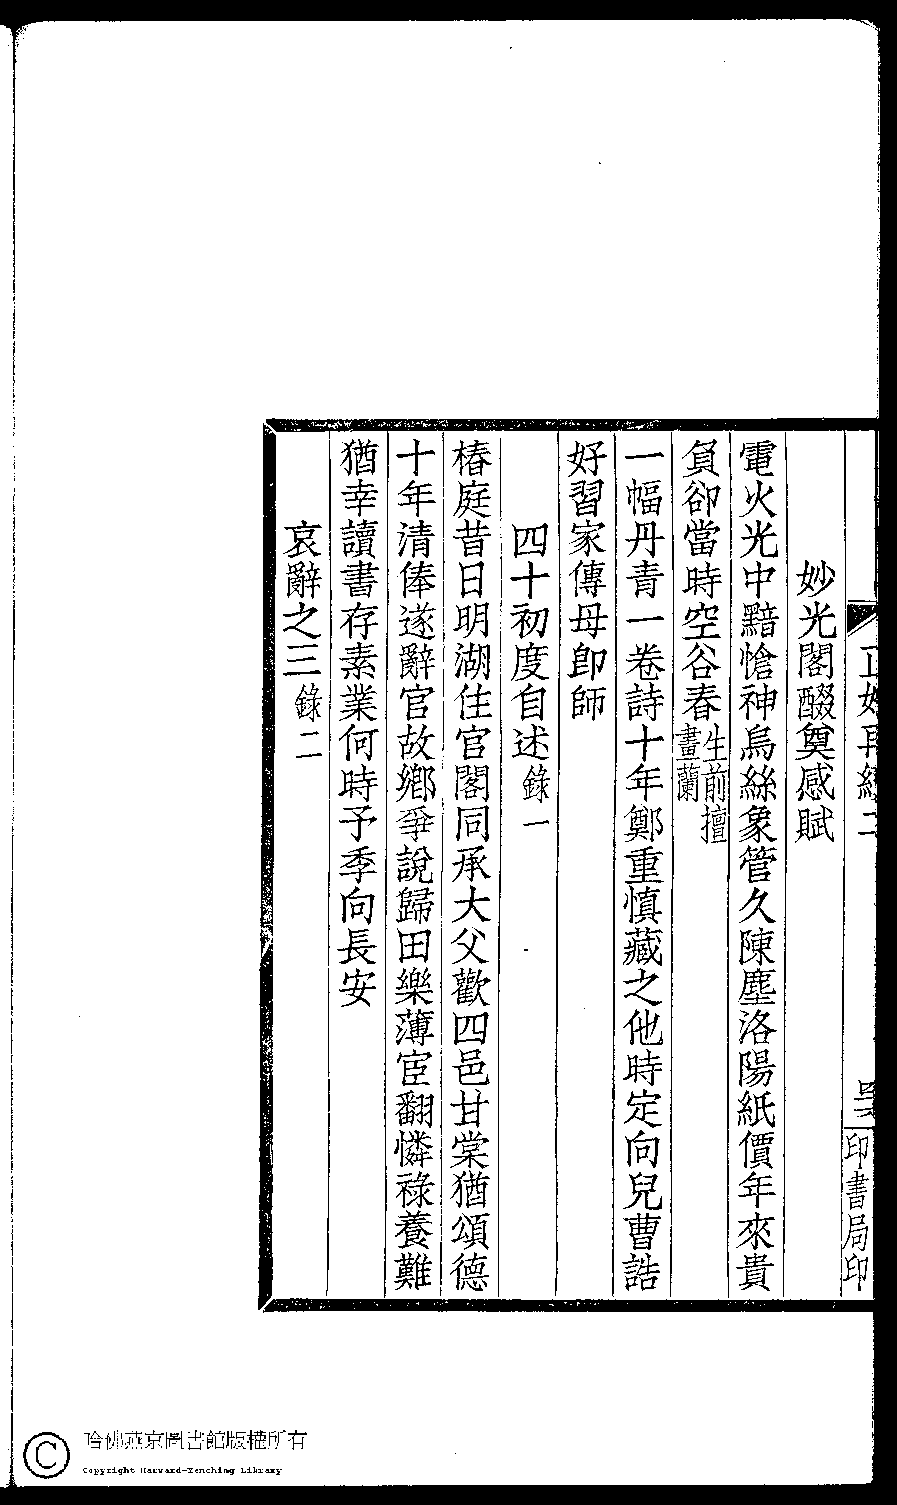 妙光閣醊奠感賦
電火光中黯愴神烏絲象管久陳塵洛陽紙價年來貴
負卻當時空谷春生前擅畫蘭
一幅丹青一卷詩十年鄭重慎藏之他時定向兒曹誥
好習家傳母卽師
四十初度自述錄一
椿庭昔日明湖住官閣同承大父歡四邑甘棠猶頌德
十年清俸遂辭官故鄉爭說歸田樂薄宦翻憐祿養難
猶幸讀書存素業何時予季向長安
哀辭之三錄二
印書局印
哈佛燕京圖書館版權所有
Copyright Harvard-Yenching Library